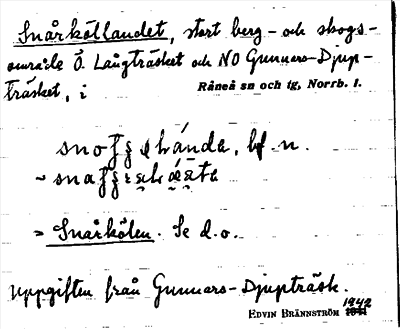 Snårköllandet, stort berg- och skogs-
område Ö. Långträsket och NO Gunnars-Djup-
träsket, i Råneå sn och tg, Norrb. l.
bf n.
= Snårkölen. Se d.o.
Uppgiften från Gunnars-Djupträsk.
EDVIN BRÄNNSTRÖM 1942